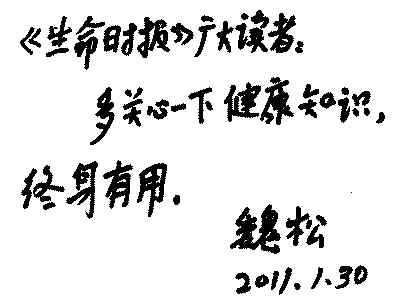 《生命时报》广大读者：
多关心一下健康知识，
终身有用．
魏松
2011.1.30